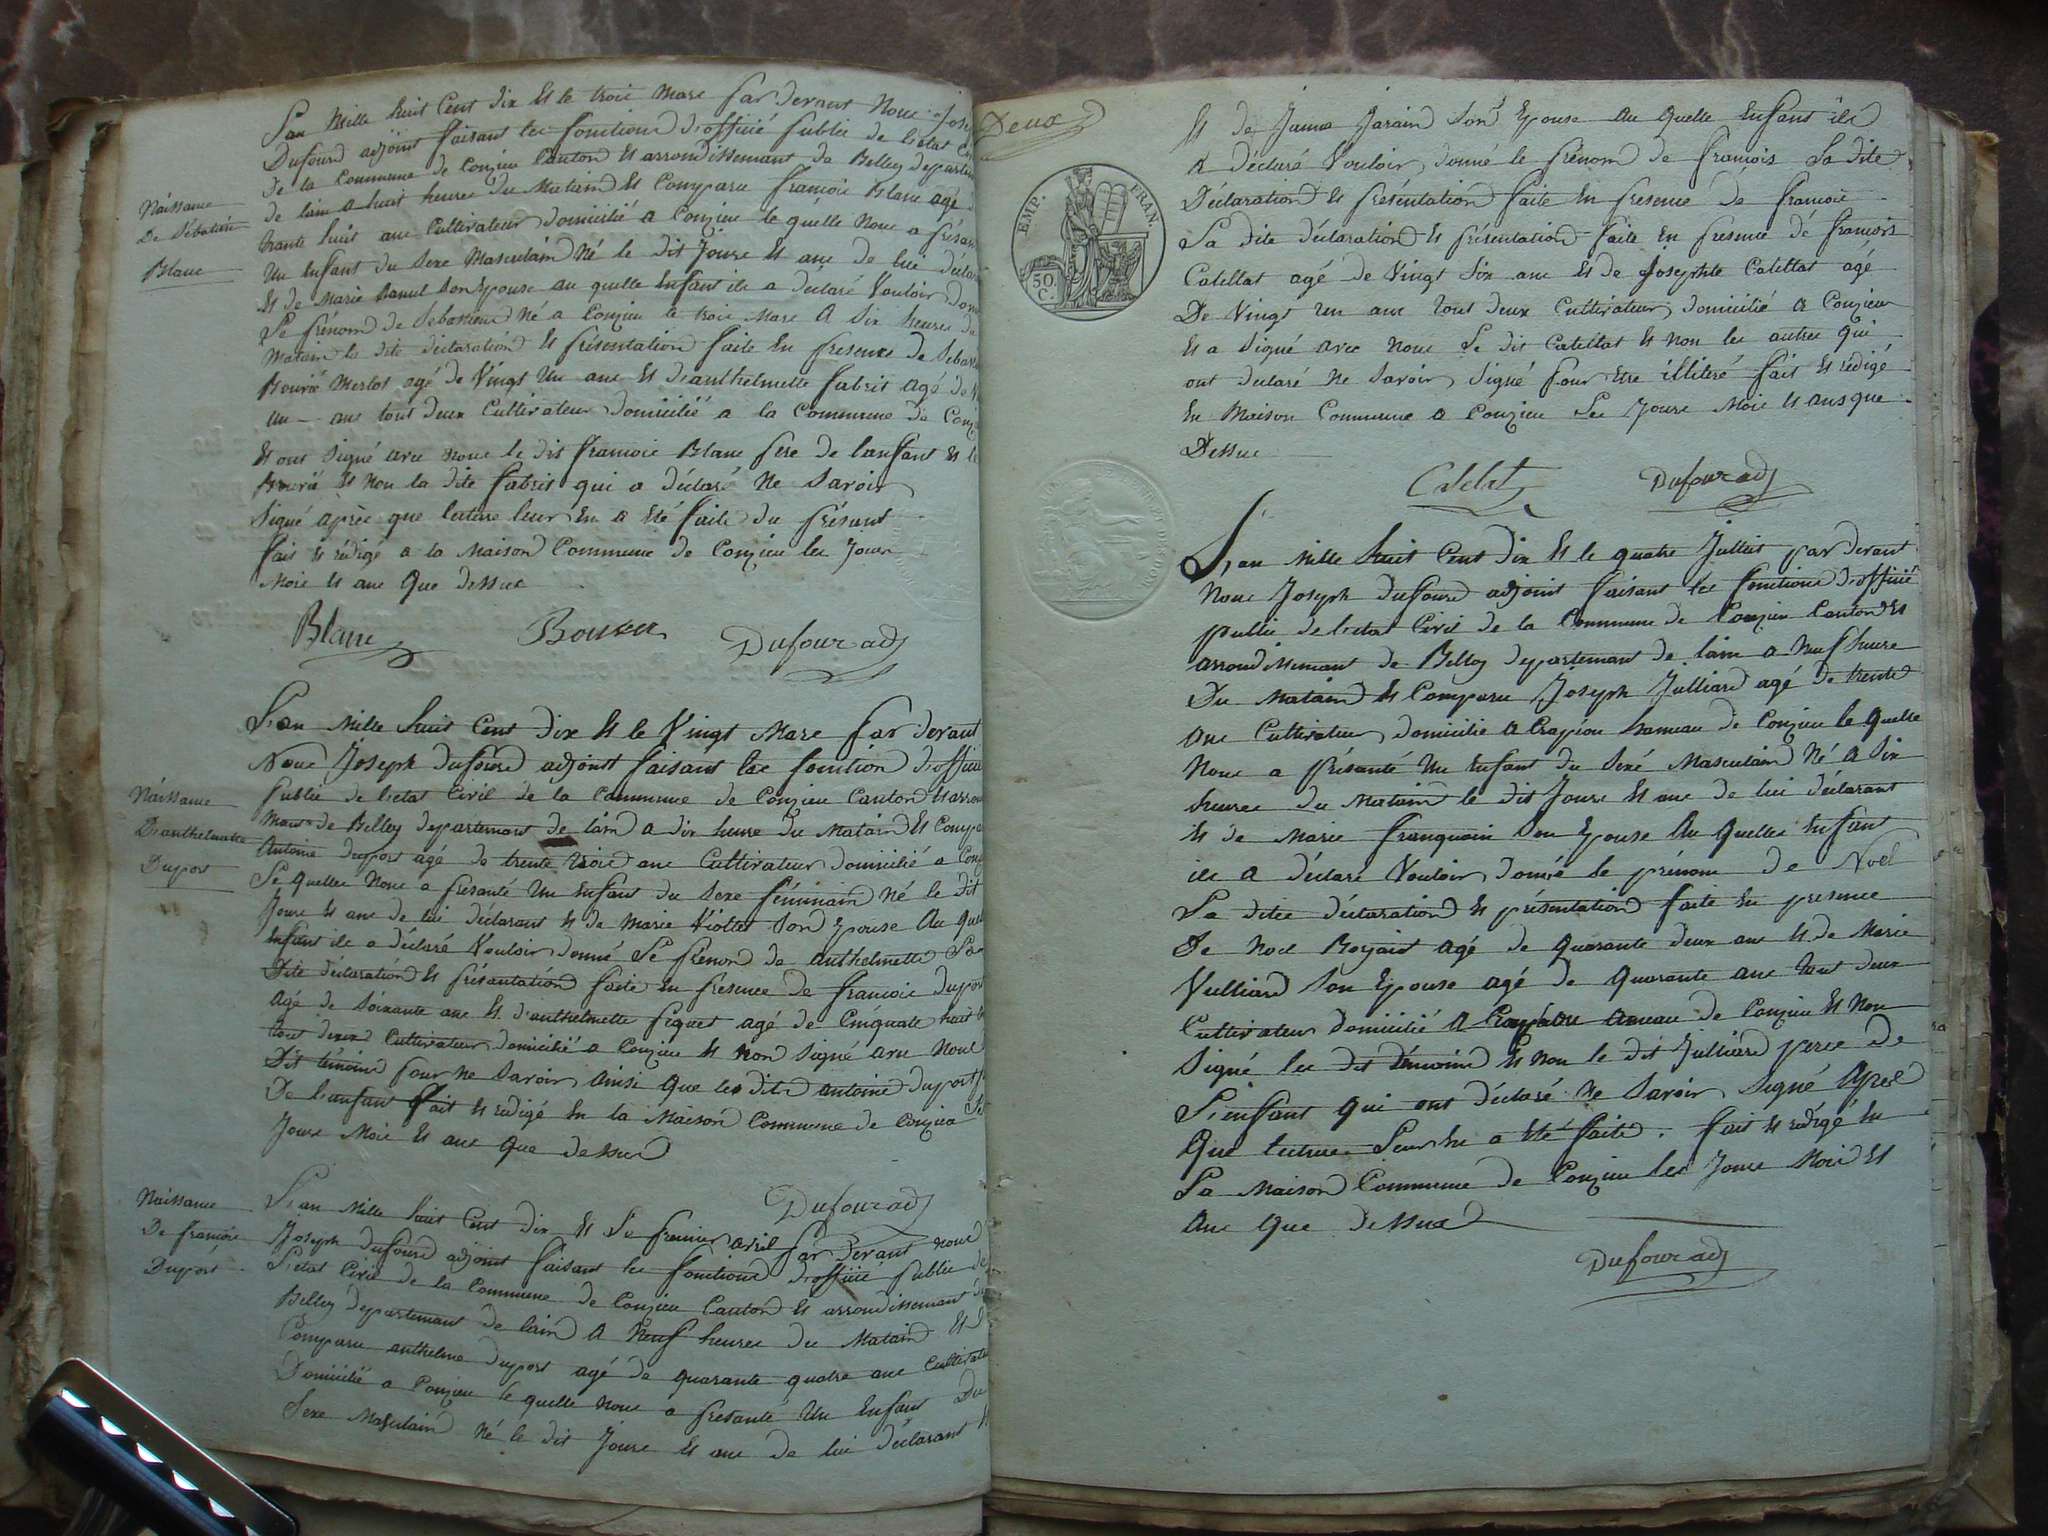 L'an Mille huit Cent dix Et le trois Mars par devant Nous Jose
Dufourd adjoint faisant les fonctions d'officié publie de l'état
de la Commune de Conzieu Canton Et arrondissement de Belley departem
de l'ain a huit heures du Matain Et Comparu francois Blanc agé
trante huit ans Cultivateur domicilié a Conzieu le quélle Nous a présan
Un Enfant du Sexe Masculain Né le dit Jours Et ans de lui déclar
Et de Marie son Epouse au quelle Enfant ile a déclaré Vouloir don
Le prénom de Sébastien Né a Conzieu le trois Mars A Six heures du
Matain la dite déclaration Et présentation faite En presence de Sebas
Merlot agé de Vingt Un ans Et d'anthelmette fabrit agé de
un ans tout deux Cultivateur domicilié a la Commune de Conz
Et ont Signé avec nous le dit francois Blanc pere de l'anfant Et le
Et non la dite fabrit qui a déclaré Ne Savoir
Signé après que lecture leur En a été faite du présant
fait Et rédigé a la Maison Commune de Conzieu les Jours
Mois Et ans Que dessus
Naissance
De Sébastien
Blanc
Blanc Dufour adj
L'an Mille huit Cent dix Et le Vingt Mars par devant
Nous Joseph dufourd adjoint faisant les fonction d'officié
Publie de l'état Civil de la Commune de Conzieu Canton Et arron
de Belley departemant de l'ain a dix heure du Matain Et Compa
Antoine duport agé de trente trois ans Cultivateur domicilié a Conz
Le quelles Nous a presanté Un Enfant du Sexe féminain Né le dit
Jours Et ans de lui déclarant Et de Marie Violet Son Epouse Au quel
Enfant ile a déclaré Vouloir donné Le prénon de anthelmette La
Dite déclaration Et présantation faite En presence de francois dupor
Agé de Soixante ans Et d'anthelmette piquet agé de Cinquate huit
tout deux Cultivateur domicilié a Conzieu Et non Signé avec Nous
Dit témoins pour Ne Savoir Ainsi que les dits antoine duport
De l'anfant fait Et redigé En la Maison Commune de Conzieu
Jours Mois Et ans que dessus
Naissance
D'anthelmette
Duport
Dufour adj
L'an Mille huit Cent dix Et Le premier avril par devant nous
Joseph dufourd adjoint faisant les fonctions d'officié publie de
L'état Civil de la Commune de Conzieu Canton Et arrondissement de
Belley departemant de l'ain A Neuf heures du Matain Et
Comparu anthelme duport agé de quarante quatre ans Cultivate
Domicilié a Conzieu le quelle nous a presanté Un Enfant Du
Sexe Masculain Né le dit Jours Et ans de lui déclarant
Naissance
De francois
Duport
Deux
EMP. FRAN.
50. C.
Et de Janne Jarain Son Epouse Au Quelle Enfant ile
A déclaré Vouloir donné le prénom de francois La dite
Déclaration Et présentation faite En presence de francois
La dite déclaration Et présentation faite En presence de francois
Catellat agé de Vingt Six ans Et de Josephte Catellat agé
De Vingt un ans tout deux Cultivateur domicilié a Conzieu
Et a Signé avec nous Le dit Catellat Et non les autres qui
ont déclaré Ne Savoir Signé pour Etre illitéré fait Et rédigé
En Maison Commune a Conzieu Les Jours Mois Et ans que
Dessus
Catelat Dufour adj
L'an Mille huit Cent dix Et le quatre Juillet par devant
Nous Joseph dufourd adjoint faisant les fonctions d'officié
publie de l'état Civil de la Commune de Conzieu Canton Et
arrondissemant de Belley departemant de l'ain a Neuf heure
Du Matain Et Comparu Joseph Julliard agé de trente
ans Cultivateur domicilié a Crapéou hameau de Conzieu le Quelle
Nous a présanté Un Enfant du Sexé Masculain Né A Six
heures du Matain le dit Jours Et ans de lui déclarant
Et de Marie franquain Son Epouse Au Quelles Enfant
ile A déclaré Vouloir donné le prénom de Noel
La dite déclaration Et présentation faite En presence
De Noel Borjait agé de Quarante deux ans Et de Marie
Vulliard Son Epouse agé de Quarante ans tout deux
Cultivateur domicilié A Crapéou de Conzieu Et Non
Signé les dit témoins Et non le dit Julliard pere de
L'enfant Qui ont déclaré Ne Savoir Signé Apres
Que lecture Leur En a Eté faite. fait Et rédigé En
La Maison Commune de Conzieu les Jours Mois Et
ans Que dessus
Dufour adj